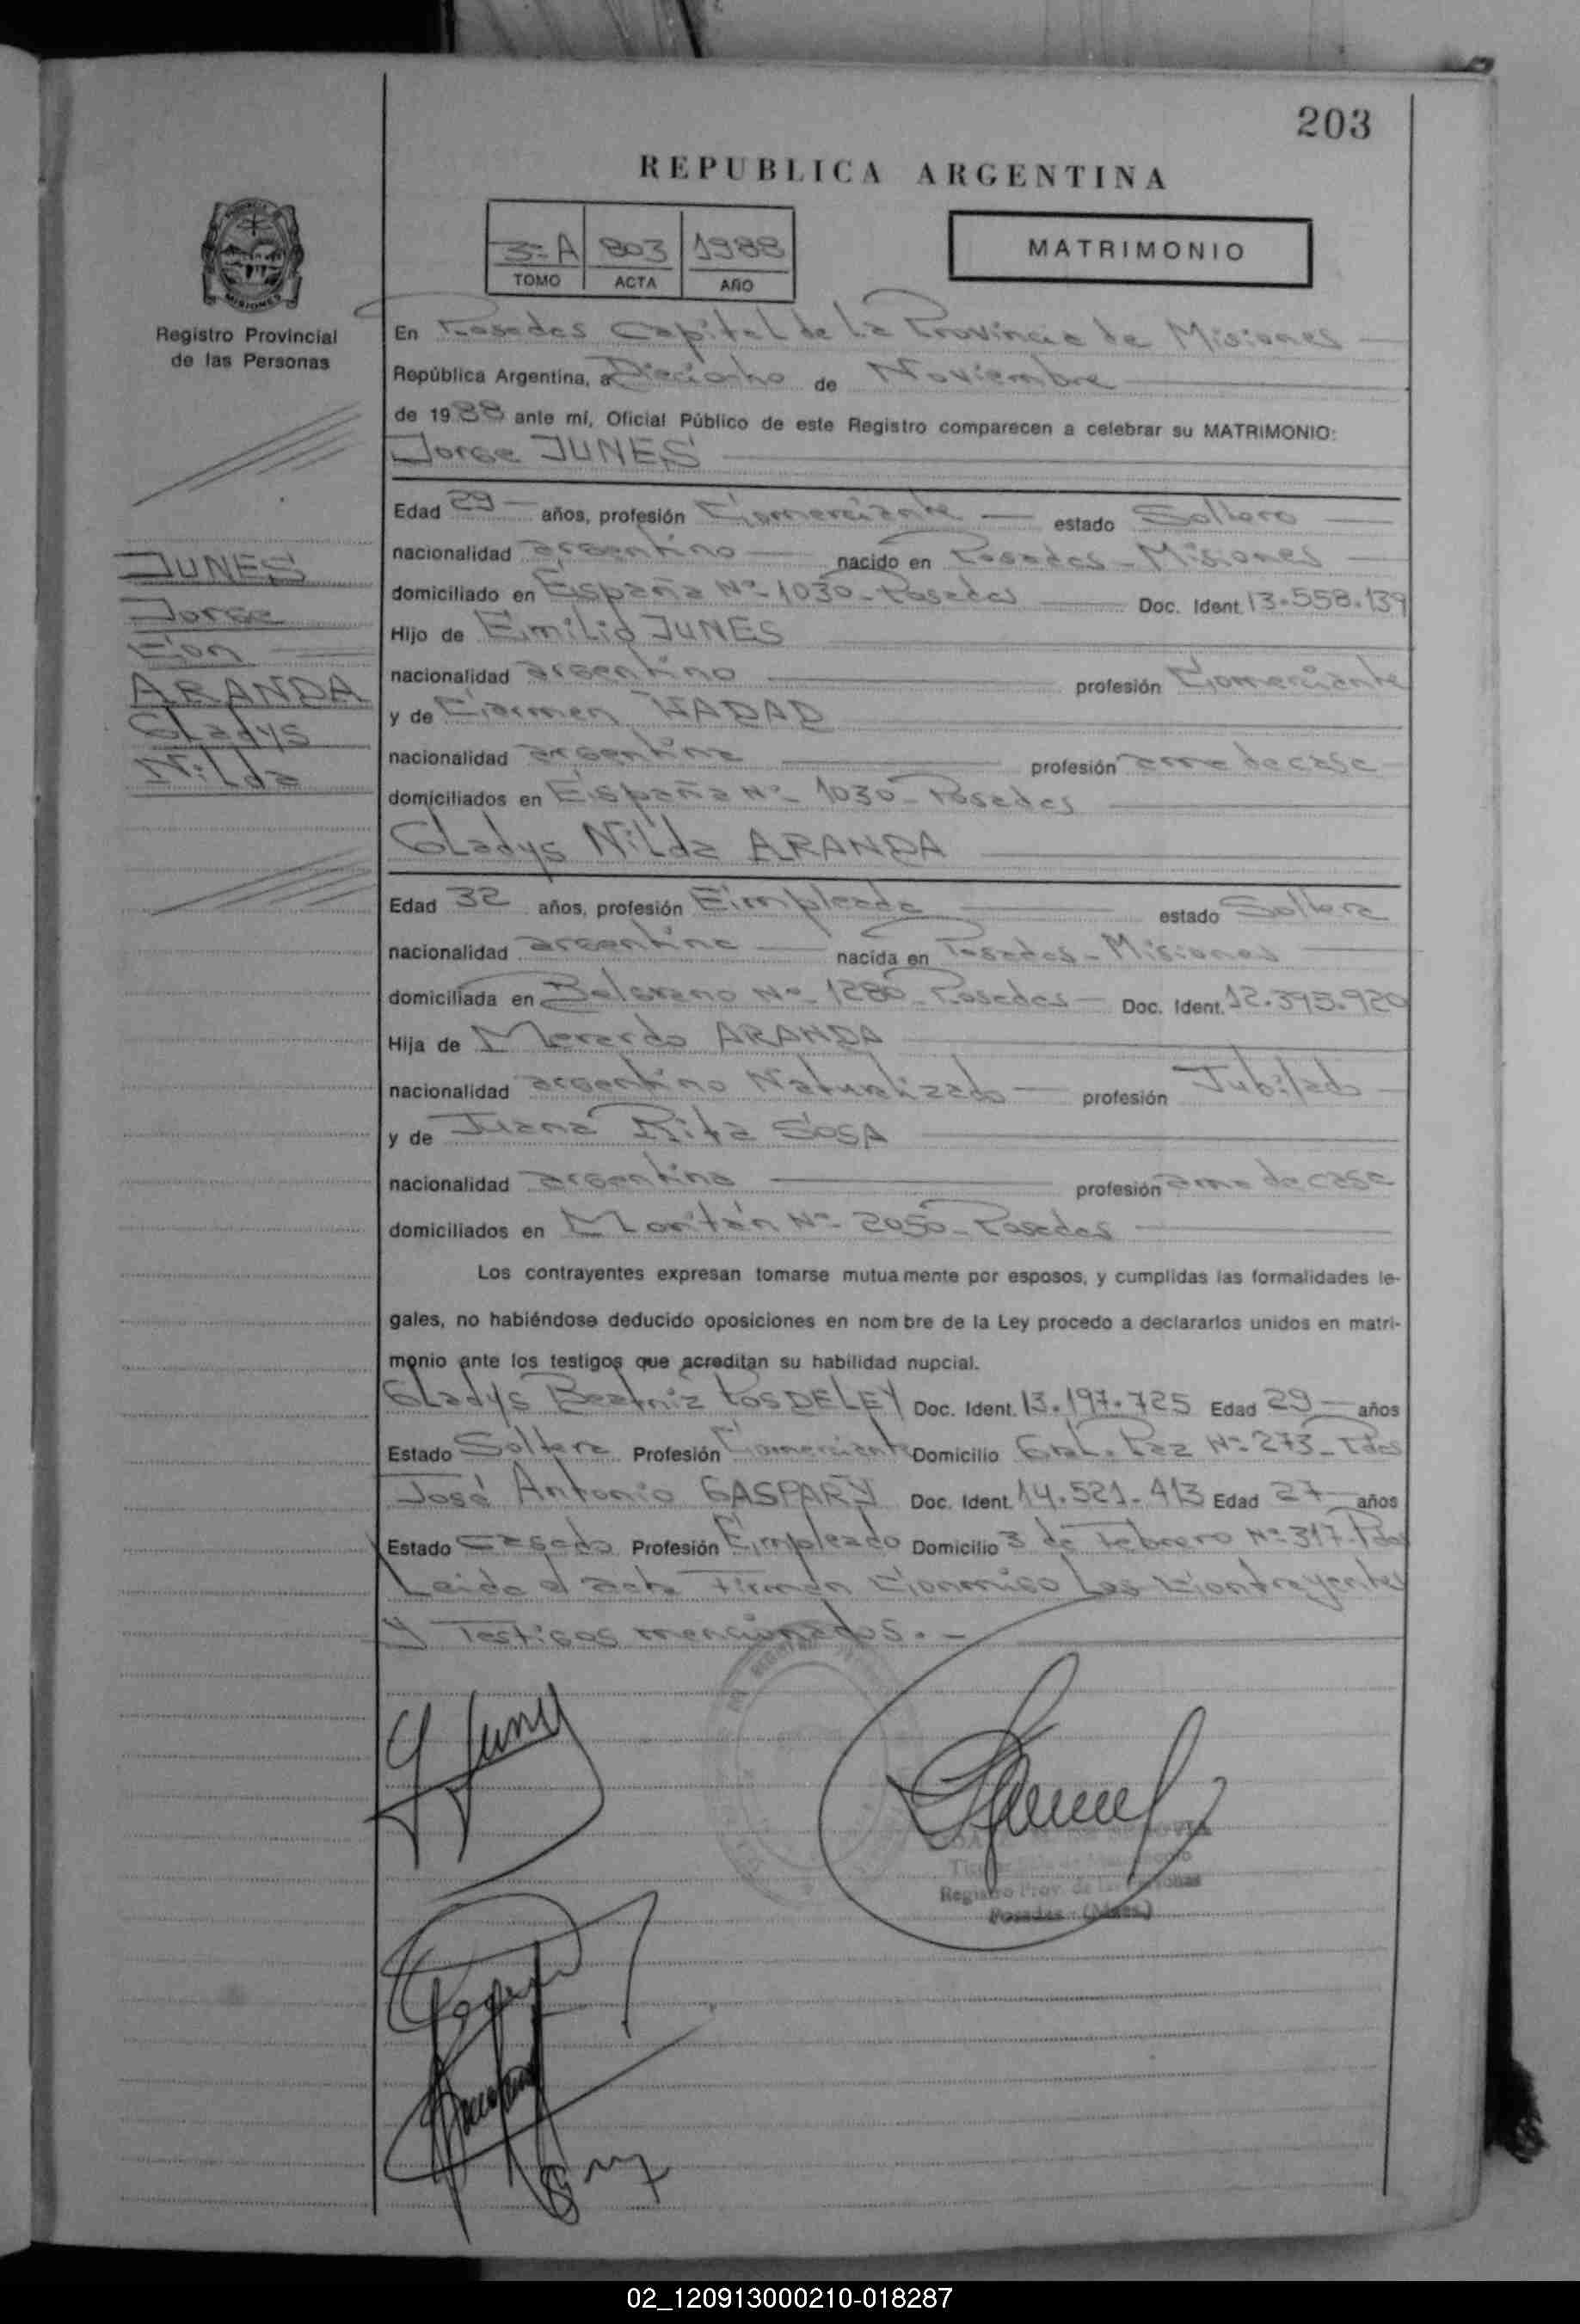 203
REPUBLICA ARGENTINA
3º A 803 1988
TOMO ACTA AÑO
MATRIMONIO
MISIONES
Registro Provincial
de las Personas
En Posadas Capital de La Provincia de Misiones
República Argentina, a Dieciocho de Noviembre
de 1988 ante mí, Oficial Público de este Registro comparecen a celebrar su MATRIMONIO:
Jorge JUNES
Edad 29 años, profesión Comerciante estado Soltero
nacionalidad argentino nacido en Posadas - Misiones
domiciliado en España Nº 1030 - Posadas Doc. Ident. 13.558.139
Hijo de Emilio JUNES
nacionalidad argentino profesión Comerciante
y de Carmen HADAD
nacionalidad argentina profesión ama de casa
domiciliados en España Nº 1030 - Posadas
Gladys Nilda ARANDA
JUNES
Jorge
Con
ARANDA
Gladys
Nilda
Edad 32 años, profesión Empleada estado Soltera
nacionalidad argentina nacida en Posadas - Misiones
domiciliada en Belgrano Nº 1280 - Posadas - Doc. Ident. 12.393.920
Hija de Merardo ARANDA
nacionalidad argentino Naturalizado profesión Jubilado
y de Juana Rita SOSA
nacionalidad argentina profesión ama de casa
domiciliados en Moritán Nº 2050 - Posadas
Los contrayentes expresan tomarse mutuamente por esposos, y cumplidas las formalidades le-
gales, no habiéndose deducido oposiciones en nombre de la Ley procedo a declararlos unidos en matri-
monio ante los testigos que acreditan su habilidad nupcial.
Gladys Beatriz POSDELEY Doc. Ident. 13.197.725 Edad 29 años
Estado Soltera Profesión Comerciante Domicilio Gral. Paz Nº 273 - Pdas
José Antonio GASPARY Doc. Ident. 14.521.413 Edad 27 años
Estado Casado Profesión Empleado Domicilio 3 de Febrero Nº 317 - Pdas
Leida el acta Firman Conmigo Los Contrayentes
y Testigos mencionados. -
Registro Prov. de las Personas
Posadas (Mnes)
02_120913000210-018287